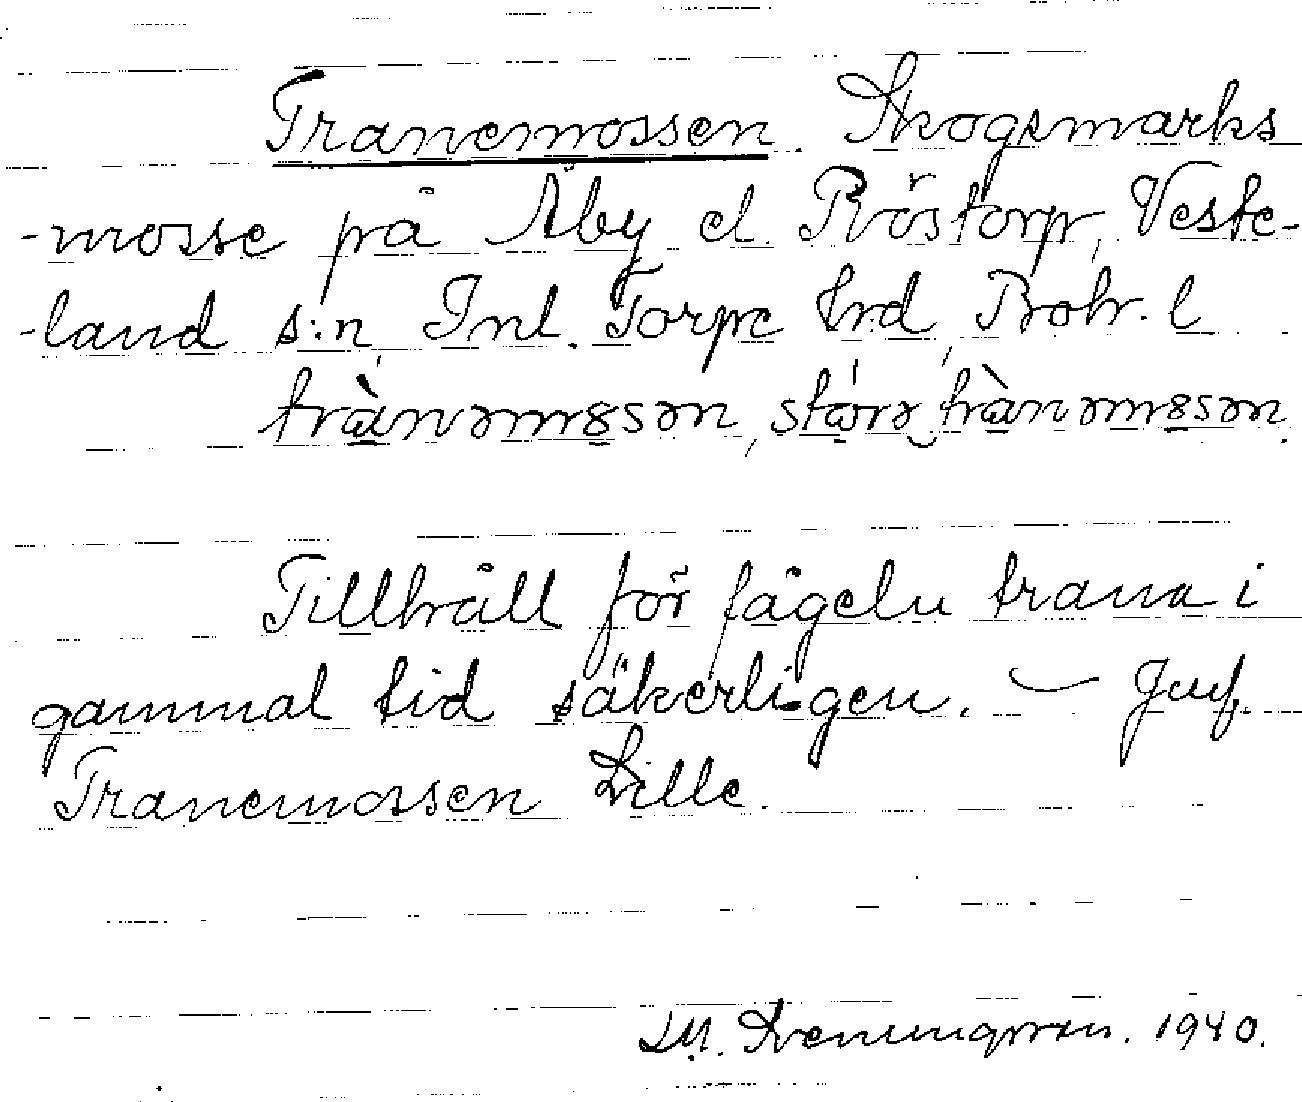 Tranemossen. Skogsmarks
-mosse på Åby el. Röstorp, Veste-
-land s:n, Inl. Torpe hrd, Boh. l
trànəmɞsən, stórə trànəmɞsən.
Tillhåll för fågeln trana i
gammal tid säkerligen. — Jmf.
Tranemossen Lille.
1940.